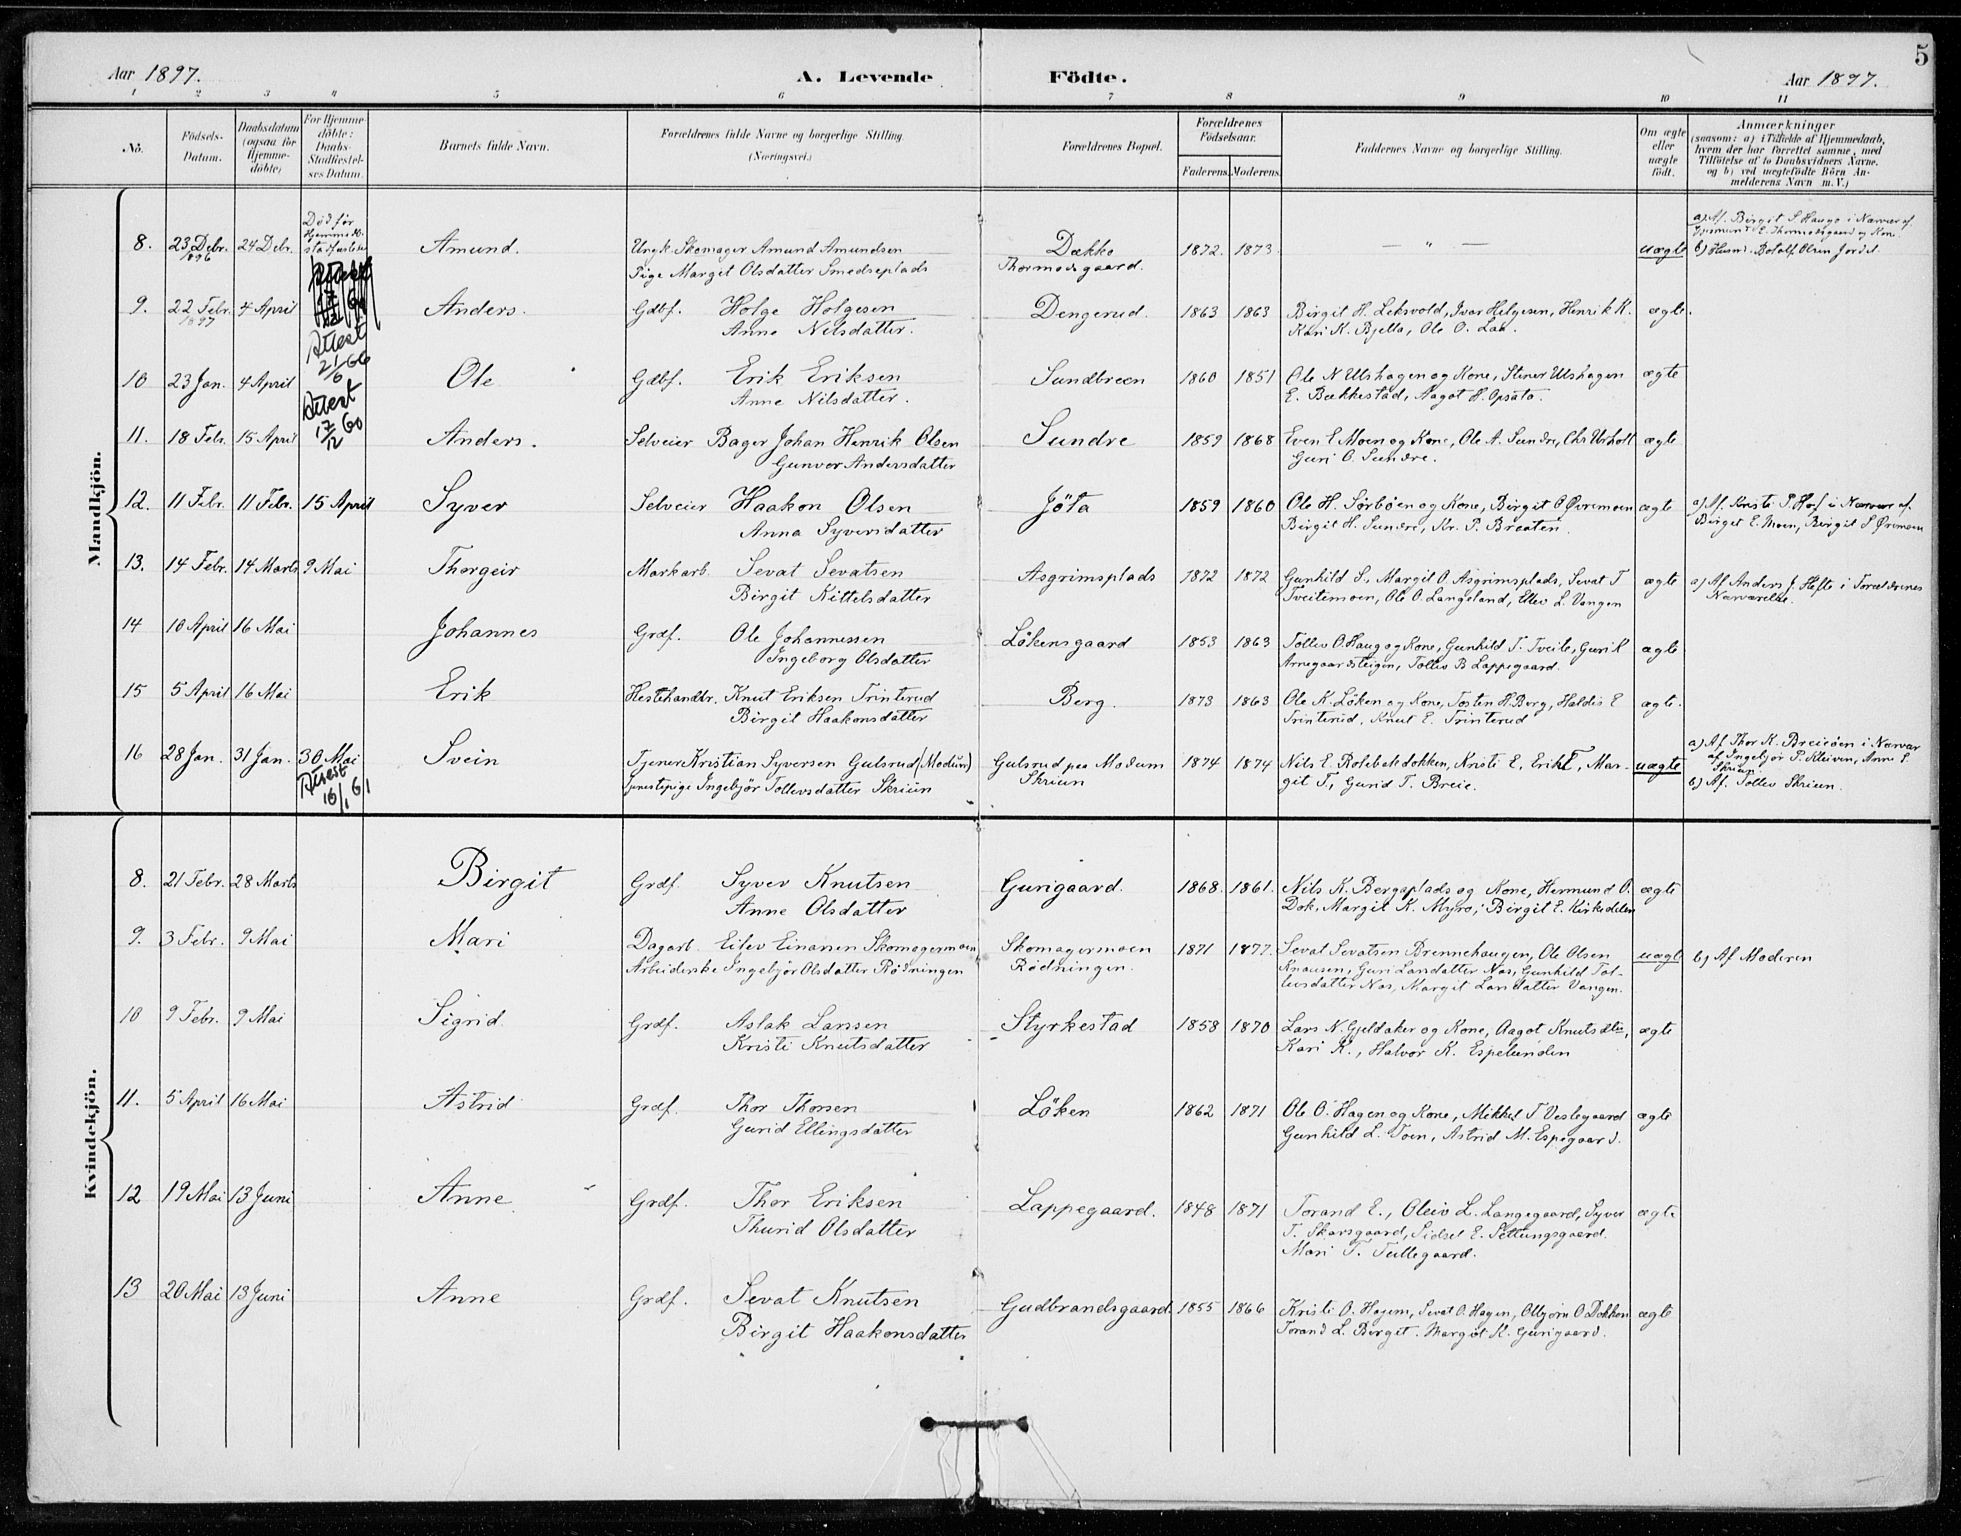 5
Aar 1897. A. Levende Födte. Aar 1897.
1 2 3 4 5 6 7 8 9 10 11
No. Födsels-Datum. Daabsdatum (ogsaa for Hjemmedöbte) For Hjemmedöbte: Daabs-Stadfæstelses Datum. Barnets fulde Navn. Forældrenes fulde Navne og borgerlige Stilling. (Næringsvei.) Forældrenes Bopæl. Forældrenes Födselsaar. Faderens. Moderens. Faddernes Navne og borgerlige Stilling. Om ægte eller uægte födt. Anmærkninger (saasom: a) i Tilfælde af Hjemmedaab, hvem der har forrettet samme, med Tilföielse af to Daabsvidners Navne. og b) ved uægtefödte Börn Anmelderens Navn m. V.)
Mandkjön.
8. 23 Debr. 1896 24 Debr. Død før Hjemmed. Amund. Ungk. Skomager Amund Amundsen Dække 1872. 1873. — " — uægte a) Af. Birgit S. Hauge i Nærvær af
Pige Margit Olsdatter Smedseplads Thormodsgaard. E. Thormodsgaard og Kone. b) Husm. Botolf Olsen Jordet
9. 22 Febr. 1897 4 April Anders. Gdbf. Holge Holgesen Dengerud. 1863 1863 Birgit H. Leksvold, Ivar Helgesen, Henrik K. ægte.
Attest 21/6 66 Anne Nilsdatter. Kari K. Bjella, Ole O. Laa.
10 23 Jan. 4 April Ole Gdbf. Erik Eriksen Sundbreen 1860 1851 Ole N Ulshagen og Kone, Stener Ulshagen ægte
Attest 17/12 60 Anne Nilsdatter. E. Bækkestad, Aagot H. Opsato.
11. 18 Febr. 15 April Anders. Selveier Bager Johan Henrik Olsen Sundre 1859 1868 Even E Moen og Kone, Ole A. Sundre, Chr Urholt ægte
Gunvor Andersdatter Guri O. Sundre.
12. 11 Febr. 11 Febr. 15 April Syver Selveier Haakon Olsen Jöta 1859 1860 Ole H. Sörböen og Kone, Birgit O Øvremoen ægte a) Af. Kristi P. Hof i Nærvær af.
Anna Syversdatter Birgit H. Sundre, Kr. P. Braaten. Birget E. Moen, Birgit S Øvremoen
13. 14 Febr. 14 Marts 9 Mai Thorgeir Markarb. Sevat Sevatsen Asgrimsplads 1872 1872 Gunhild S., Margit O. Asgrimsplads, Sevat T ægte a) Af Anders J. Hefte i Forældrenes
Birgit Kittelsdatter Tveitemoen, Ole O. Langeland, Ellev L. Vangen Nærværelse.
14 10 April 16 Mai Johannes Grdf. Ole Johannessen Lökensgaard 1853 1863 Tollev O. Haug og Kone, Gunhild T. Tveito, Guri K ægte
Ingeborg Olsdatter Arnegaardsteigen, Tollev B Lappegaard.
15 5 April 16 Mai Erik Hestehandler. Knut Eriksen Trinterud Berg. 1873 1863 Ole K. Löken og Kone, Tosten H. Berg, Haldis E ægte.
Birgit Haakonsdatter Trinterud, Knut E. Trinterud
16 28 Jan. 31 Jan. 30 Mai Svein Tjener Kristian Syversen Gulsrud (Modum) Gulsrud paa Modum 1874 1874 Nils E. Rotebakdokken, Kristi E, Erik T, Mar- uægte a) Af Thor K. Breiöen i Nærvær
Attest 16/1 61 Ingebjör Tollevsdatter Skriun Skriun git T., Gurid T. Breie. af Ingebjör P. Kleiven, Anne P. Skriun. b) Af. Tollev Skriun.
Kvindekjön.
8. 21 Febr. 28 Marts Birgit Grdf. Syver Knutsen Gurigaard. 1868. 1861. Nils K. Bergsplads og Kone, Hermund O. ægte
Anne Olsdatter Dok, Margit K. Myro, Birgit E. Kirkedelen
9. 3 Febr. 9 Mai Mari Dagarb. Eilev Einarsen Skomagermoen Skomagermoen 1871 1877. Sevat Sevatsen Brennehaugen, Ole Olsen uægt b) Af Moderen
Arbeiderske Ingebjör Olsdatter Rödningen Rödningen. Knausen, Guri Larsdatter Nos, Gunhild Tol-
levsdatter Nos, Margit Larsdatter Vangen.
10 9 Febr. 9 Mai Sigrid Grdf. Aslak Larsen Styrkestad 1858 1870 Lars N. Gjeldaker og Kone, Aagot Knutsdtr, ægte
Kristi Knutsdatter Kari K., Halvor K. Espelunden
11. 5 April 16 Mai Astrid Grdf. Thor Thorsen Löken 1862 1871 Ole O. Hagen og Kone, Mikkel T Veslegaard ægte
Gurid Ellingsdatter Gunhild L. Toen, Astrid M. Espegaard.
12 19 Mai 13 Juni Anne Grdf. Thor Eriksen Lappegaard. 1848 1871 Torand E., Oleiv L. Langegaard, Syver ægte
Thurid Olsdatter T. Skarsgaard, Sidsel E. Settungsgaard.
Mari T. Tuftegaard.
13 20 Mai 13 Juni Anne Grdf. Sevat Knutsen Gudbrandsgaard. 1855 1866 Kristi O. Hagen, Sevat O. Hagen, Olbjörn O Dokken ægte
Birgit Haakonsdatter Torand L. Berget. Margit K. Gurigaard.